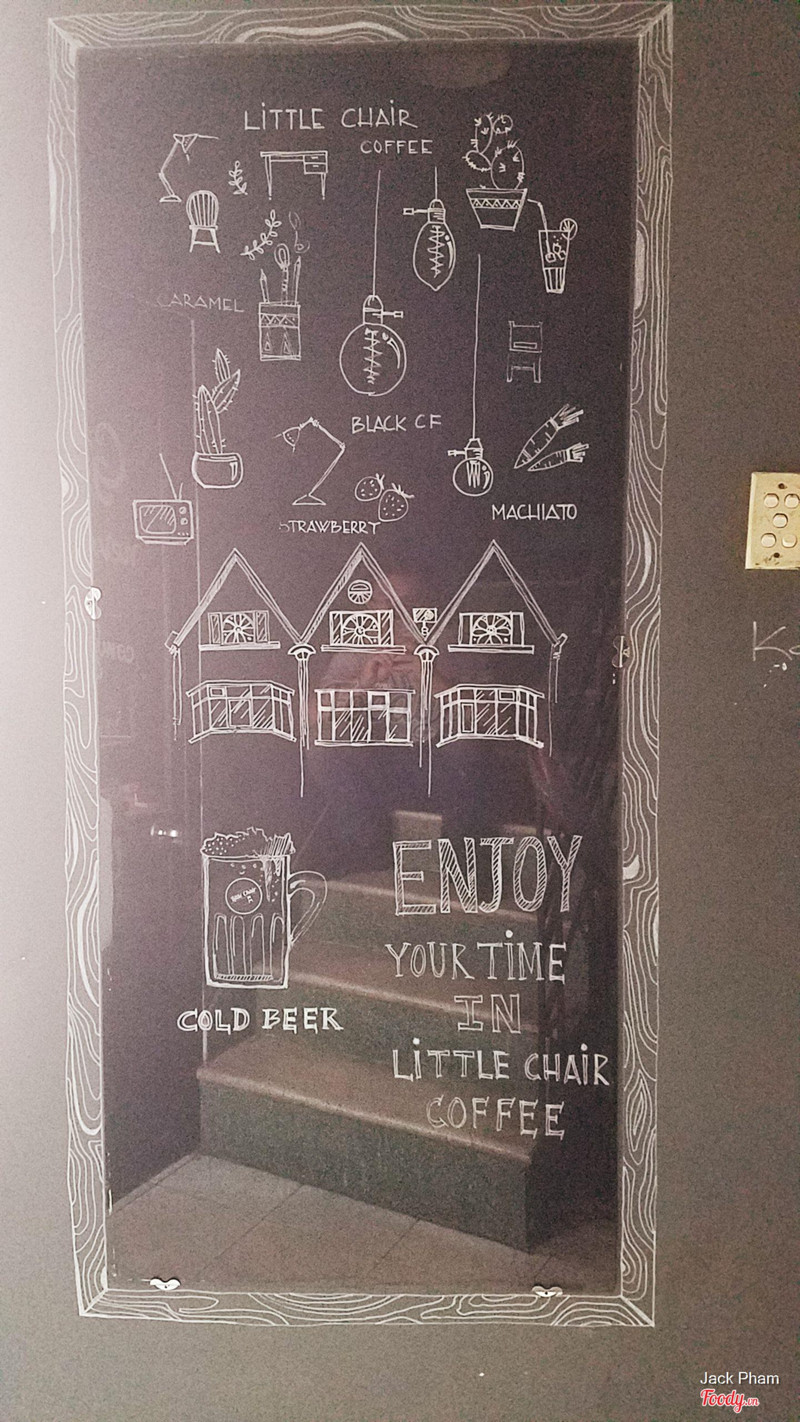 LITTLE CHAIR
COFFEE
CARAMEL
BLACK CF
STRAWBERRY
MACHIATO
COLD BEER
ENJOY
YOUR TIME
IN
LITTLE CHAIR
COFFEE
Jack Pham
Foody.vn